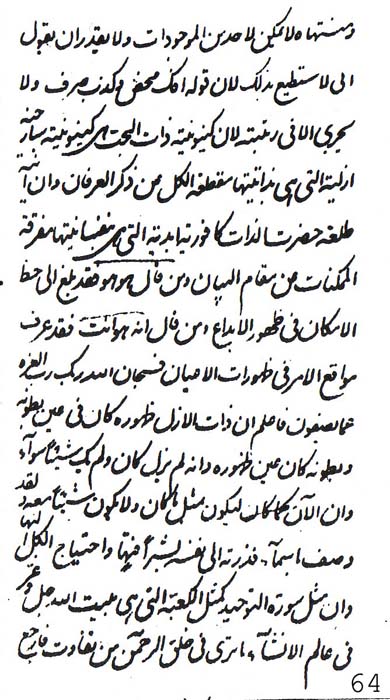 ومنتهاه لا يمكن لاحد من الموجودات ولا يقدر ان يقول
انى لاستطيع بذلك لان قوله افك محض وكذب صرف ولا
يجرى الا فى رتبته لان كينونيته ذات البحت هى كينونية ساذجية
ازلية التى هى بذاتيتها مقطعة الكل عن ذكر العرفان وان انية
طلعة حضرت الذات كافورية ابدية التى هى بنفسانيتها مفرقة
الممكنات عن مقام البيان ومن قال هو هو فقد بلغ الى حظ
الامكان فى ظهور الابداع ومن قال انه هو انت فقد عرف
مواقع الامر فى ظهورات الاعيان فسبحان الله ربك رب العزة
عما يصفون فاعلم ان ذات الازل ظهوره كان فى عين بطونه
وبطونه كان عين ظهوره وانه لم يزل كان ولم يك شيئا سواه
وان الآن كما كان ليكون بمثل ما كان ولا يكون شيئا معه ولقد
وصف اسماء قدرته الى نفسه لشرافتها واحتياج الكل اليها
وان مثل سورة التوحيد كمثل الكعبة التى هى بيت الله جل وعز
فى عالم الانشاء ما ترى فى خلق الرحمن من تفاوت فارجع
64